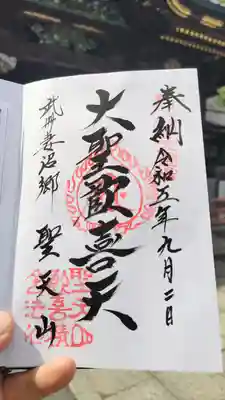 奉納 令和五年九月二日
大聖歓喜天
武州妻沼郷
聖天山